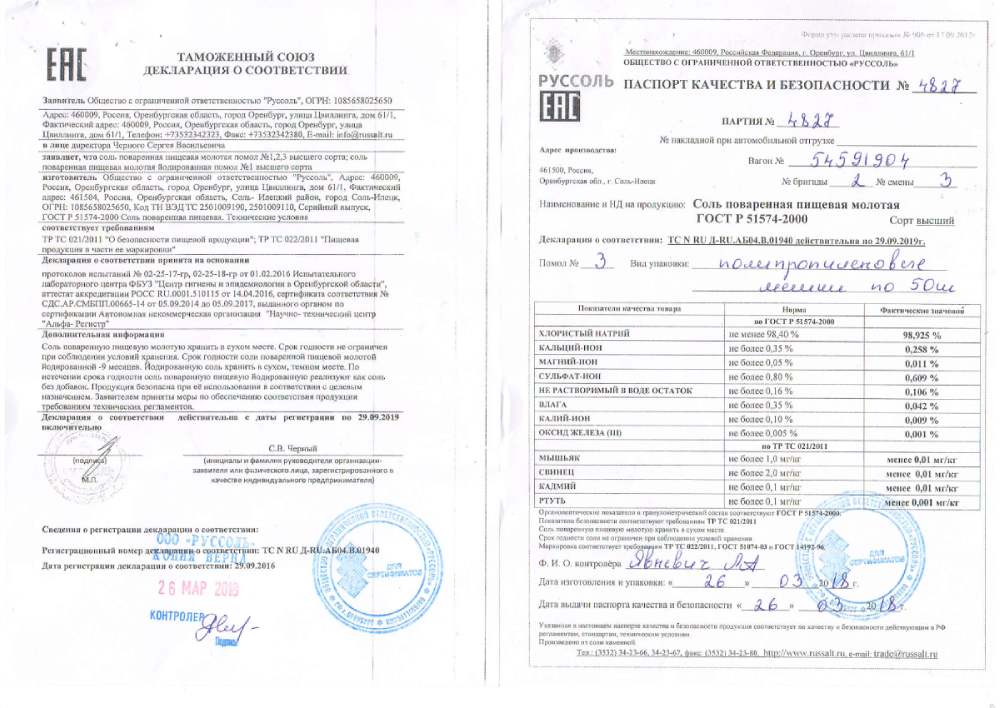 ЕАС
ТАМОЖЕННЫЙ СОЮЗ
ДЕКЛАРАЦИЯ О СООТВЕТСТВИИ
Заявитель Общество с ограниченной ответственностью "Руссоль", ОГРН: 1085658025650
Адрес: 460009, Россия, Оренбургская область, город Оренбург, улица Цвиллинга, дом 61/1,
Фактический адрес: 460009, Россия, Оренбургская область, город Оренбург, улица
Цвиллинга, дом 61/1, Телефон: +73532342323, Факс: +73532342380, E-mail: info@russalt.ru
в лице директора Черного Сергея Васильевича
заявляет, что соль поваренная пищевая молотая помол №1,2,3 высшего сорта; соль
поваренная пищевая молотая йодированная помол №1 высшего сорта
изготовитель Общество с ограниченной ответственностью "Руссоль", Адрес: 460009,
Россия, Оренбургская область, город Оренбург, улица Цвиллинга, дом 61/1, Фактический
адрес: 461504, Россия, Оренбургская область, Соль- Илецкий район, город Соль-Илецк,
ОГРН: 1085658025650, Код ТН ВЭД ТС 2501009190, 2501009110, Серийный выпуск,
ГОСТ Р 51574-2000 Соль поваренная пищевая. Технические условия
соответствует требованиям
ТР ТС 021/2011 "О безопасности пищевой продукции"; ТР ТС 022/2011 "Пищевая
продукция в части ее маркировки"
Декларация о соответствии принята на основании
протоколов испытаний № 02-25-17-гр, 02-25-18-гр от 01.02.2016 Испытательного
лабораторного центра ФБУЗ "Центр гигиены и эпидемиологии в Оренбургской области",
аттестат аккредитации РОСС RU.0001.510115 от 14.04.2016, сертификата соответствия №
СДС.АР.СМБПП.00665-14 от 05.09.2014 до 05.09.2017, выданного органом по
сертификации Автономная некоммерческая организация "Научно- технический центр
"Альфа- Регистр"
Дополнительная информация
Соль поваренную пищевую молотую хранить в сухом месте. Срок годности не ограничен
при соблюдении условий хранения. Срок годности соли поваренной пищевой молотой
йодированной -9 месяцев. Йодированную соль хранить в сухом, темном месте. По
истечении срока годности соль поваренную пищевую йодированную реализуют как соль
без добавок. Продукция безопасна при её использовании в соответствии с целевым
назначением. Заявителем приняты меры по обеспечению соответствия продукции
требованиям технических регламентов.
Декларация о соответствии действительна с даты регистрации по 29.09.2019
включительно
С.В. Черный
(подпись)
(инициалы и фамилия руководителя организации-
заявителя или физического лица, зарегистрированного в
качестве индивидуального предпринимателя)
М.П.
Сведения о регистрации декларации о соответствии:
ООО «РУССОЛЬ»
Регистрационный номер декларации о соответствии: ТС N RU Д-RU.АБ04.В.01940
КОПИЯ ВЕРНА
Дата регистрации декларации о соответствии: 29.09.2016
ДЛЯ СЕРТИФИКАТОВ
КОНТРОЛЕР
Подпись
Местонахождение: 460009, Российская Федерация, г. Оренбург, ул. Цвиллинга, 61/1
ОБЩЕСТВО С ОГРАНИЧЕННОЙ ОТВЕТСТВЕННОСТЬЮ «РУССОЛЬ»
РУССОЛЬ
ПАСПОРТ КАЧЕСТВА И БЕЗОПАСНОСТИ № 4827
ЕАС
ПАРТИЯ № 4827
№ накладной при автомобильной отгрузке
Адрес производства:
Вагон № 54591904
461500, Россия,
Оренбургская обл., г. Соль-Илецк
№ бригады 2 № смены 3
Наименование и НД на продукцию: Соль поваренная пищевая молотая
ГОСТ Р 51574-2000 Сорт высший
Декларация о соответствии: ТС N RU Д-RU.АБ04.В.01940 действительна по 29.09.2019г.
Помол № 3 Вид упаковки: полипропиленовые
мешки по 50кг
Показатели качества товара Норма Фактические значения
по ГОСТ Р 51574-2000
ХЛОРИСТЫЙ НАТРИЙ не менее 98,40 % 98,925 %
КАЛЬЦИЙ-ИОН не более 0,35 % 0,258 %
МАГНИЙ-ИОН не более 0,05 % 0,011 %
СУЛЬФАТ-ИОН не более 0,80 % 0,609 %
НЕ РАСТВОРИМЫЙ В ВОДЕ ОСТАТОК не более 0,16 % 0,106 %
ВЛАГА не более 0,35 % 0,042 %
КАЛИЙ-ИОН не более 0,10 % 0,009 %
ОКСИД ЖЕЛЕЗА (III) не более 0,005 % 0,001 %
по ТР ТС 021/2011
МЫШЬЯК не более 1,0 мг/кг менее 0,01 мг/кг
СВИНЕЦ не более 2,0 мг/кг менее 0,01 мг/кг
КАДМИЙ не более 0,1 мг/кг менее 0,01 мг/кг
РТУТЬ не более 0,1 мг/кг менее 0,001 мг/кг
Органолептические показатели и гранулометрический состав соответствуют ГОСТ Р 51574-2000.
Показатели безопасности соответствуют требованиям ТР ТС 021/2011
Соль поваренную пищевую молотую хранить в сухом месте
Срок годности соли не ограничен при соблюдении условий хранения
Маркировка соответствует требованиям ТР ТС 022/2011, ГОСТ 51074-03 и ГОСТ 14192-96.
ДЛЯ СЕРТИФИКАТОВ
Ф. И. О. контролёра
Дата изготовления и упаковки: « 26 » 03 2018г.
Дата выдачи паспорта качества и безопасности « 26 » 03 2018г.
Указанная в настоящем паспорте качества и безопасности продукция соответствует по качеству и безопасности действующим в РФ
регламентам, стандартам, техническим условиям
Произведено из соли каменной
Тел.: (3532) 34-23-66, 34-23-67, факс: (3532) 34-23-80, http://www.russalt.ru, e-mail: trade@russalt.ru